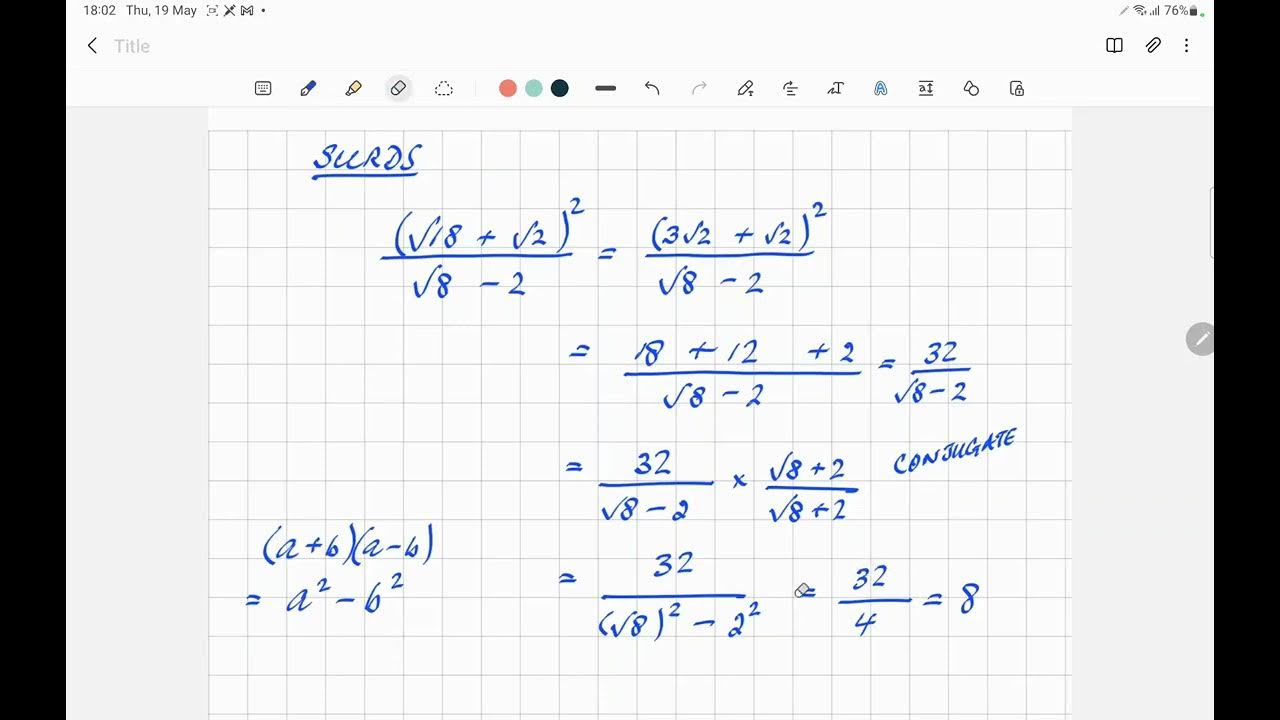 18:02 Thu, 19 May 76%
Title
SURDS
(√18 + √2)² / (√8 - 2) = (3√2 + √2)² / (√8 - 2)
= (18 + 12 + 2) / (√8 - 2) = 32 / (√8 - 2)
= 32 / (√8 - 2) × (√8 + 2) / (√8 + 2) CONJUGATE
(a+b)(a-b)
= a² - b²
= 32 / ((√8)² - 2²) = 32 / 4 = 8